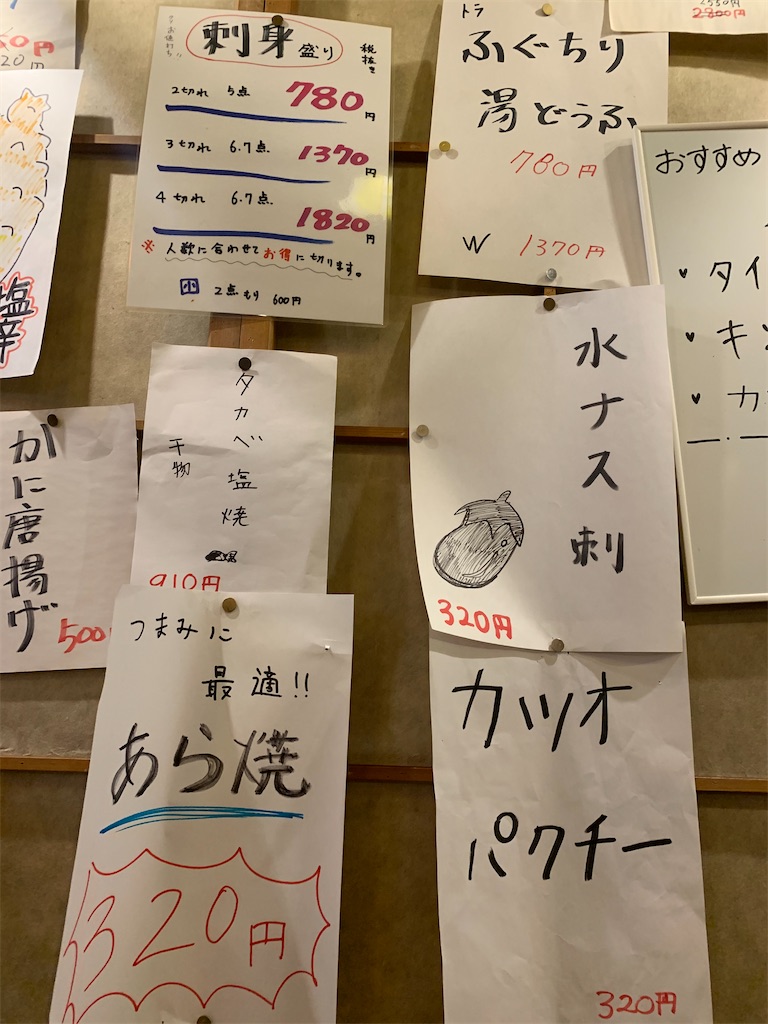 刺身盛り
税抜き
2切れ 5点 780円
3切れ 6.7点 1370円
4切れ 6.7点. 1820円
※人数に合わせてお得に切ります。
小 2点もり 600円
トラ
ふぐちり
湯どうふ
780円
W 1370円
2800円
おすすめ
タイ
キン
カ
塩辛
かに唐揚げ
500
タカベ塩焼
干物
910円
水ナス刺
320円
つまみに
最適!!
あら焼
320円
カツオ
パクチー
320円